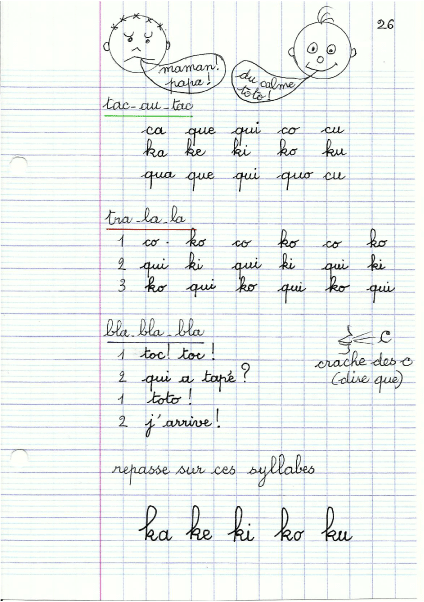 26
maman!
papa!
du calme
toto!
tac-au-tac
ca que qui co cu
ka ke ki ko ku
qua que qui quo cu
tra-la-la
1 co. ko co ko co ko
2 qui ki qui ki qui ki
3 ko qui ko qui ko qui
bla-bla-bla
1 toc! toc!
2 qui a tapé?
1 toto!
2 j'arrive!
C
crache des c
(dire que)
repasse sur ces syllabes
ka ke ki ko ku